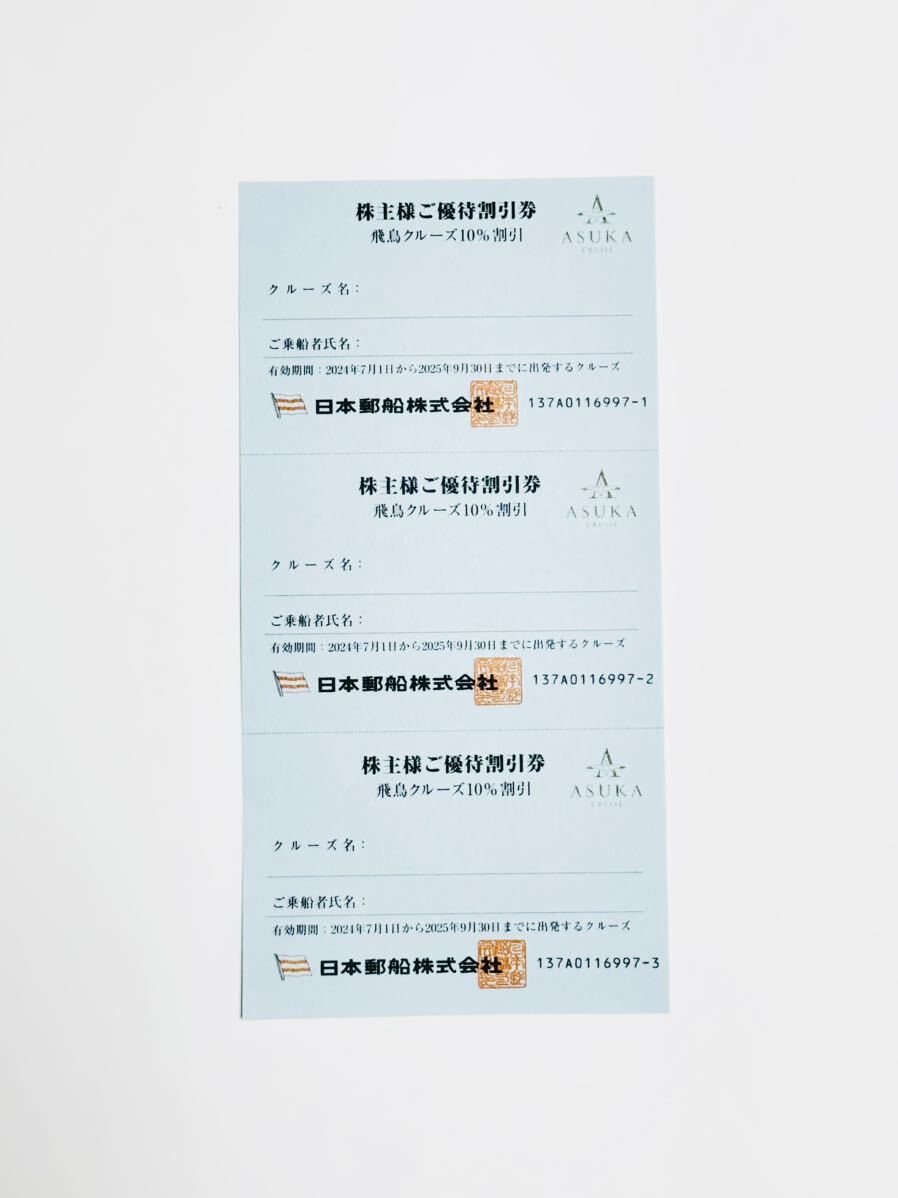 株主様ご優待割引券
飛鳥クルーズ10%割引
ASUKA
CRUISE
クルーズ名：
ご乗船者氏名：
有効期間：2024年7月1日から2025年9月30日までに出発するクルーズ
日本郵船株式会社
137A0116997-1
株主様ご優待割引券
飛鳥クルーズ10%割引
ASUKA
CRUISE
クルーズ名：
ご乗船者氏名：
有効期間：2024年7月1日から2025年9月30日までに出発するクルーズ
日本郵船株式会社
137A0116997-2
株主様ご優待割引券
飛鳥クルーズ10%割引
ASUKA
CRUISE
クルーズ名：
ご乗船者氏名：
有効期間：2024年7月1日から2025年9月30日までに出発するクルーズ
日本郵船株式会社
137A0116997-3